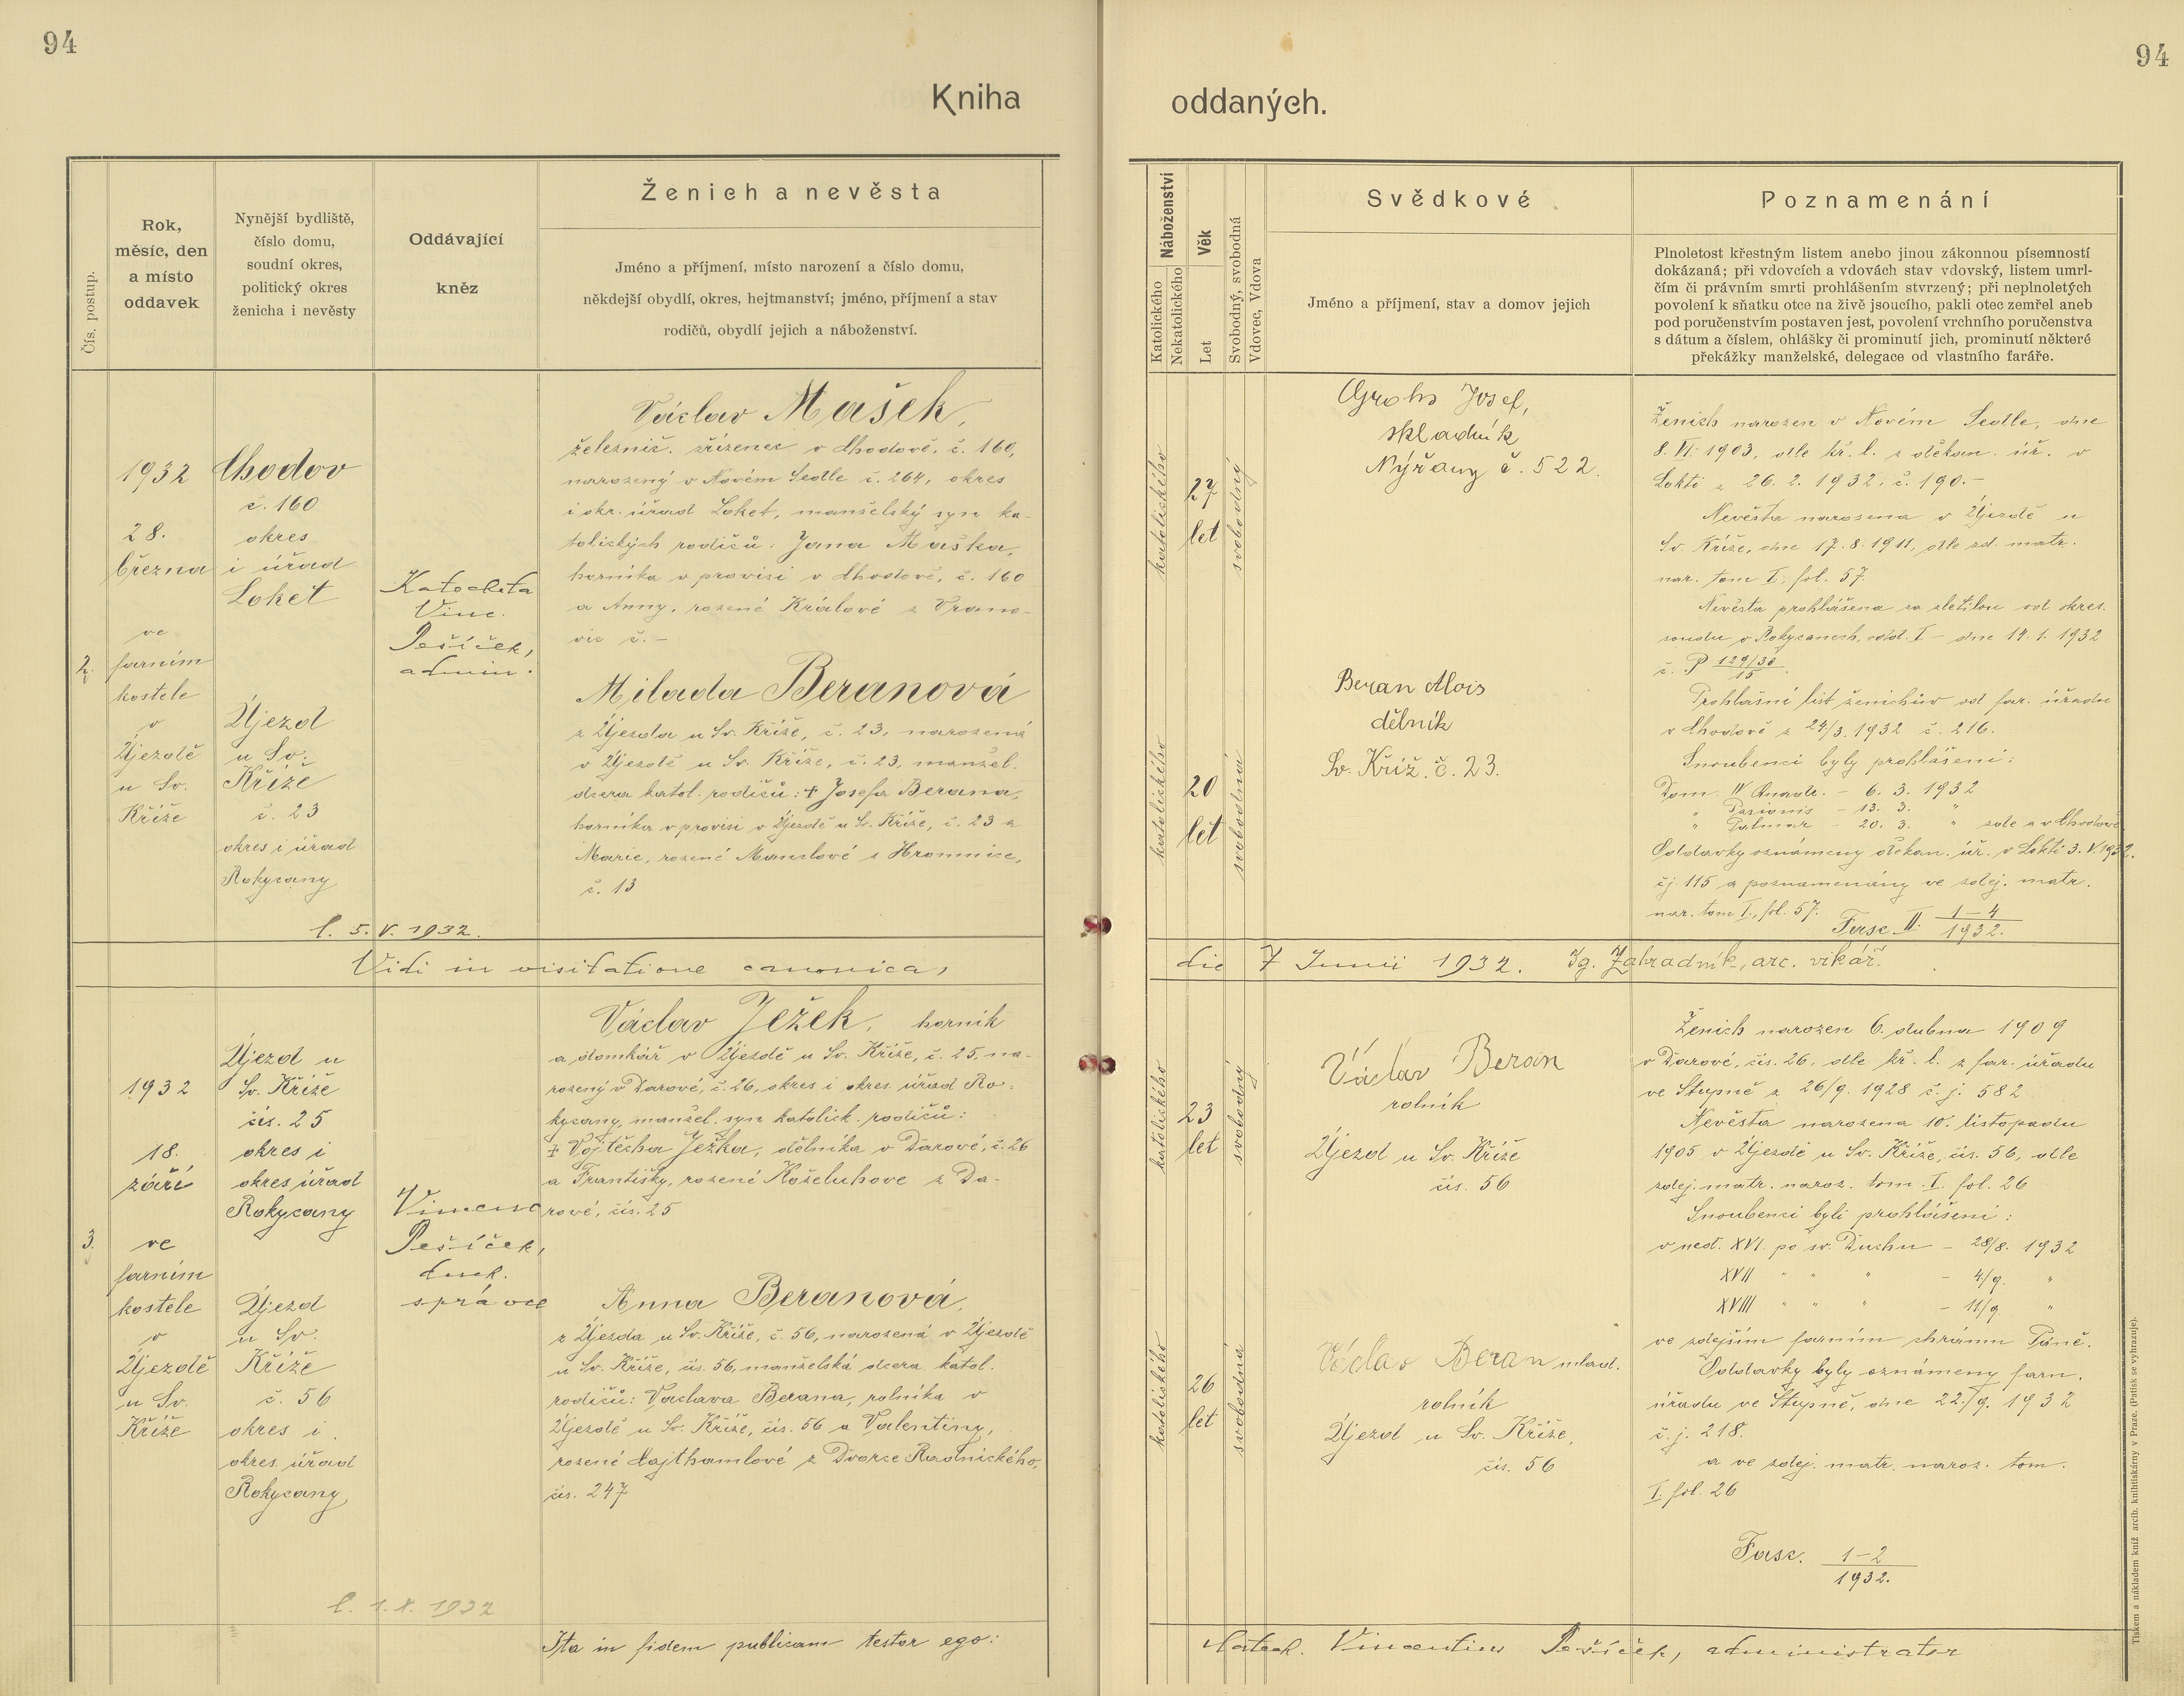 94
94
Kniha
oddaných.
Čís. postup.
Rok,
měsíc, den
a místo
oddavek
Nynější bydliště,
číslo domu,
soudní okres,
politický okres
ženicha i nevěsty
Oddávající
kněz
Ženich a nevěsta
Jméno a příjmení, místo narození a číslo domu,
někdejší obydlí, okres, hejtmanství; jméno, příjmení a stav
rodičů, obydlí jejich a náboženství.
Náboženství
Katolického
Nekatolického
Věk
Let
Svobodný, svobodná
Vdovec, Vdova
Svědkové
Jméno a příjmení, stav a domov jejich
Poznamenání
Plnoletost křestným listem anebo jinou zákonnou písemností
dokázaná; při vdovcích a vdovách stav vdovský, listem umrl-
čím či právním smrti prohlášením stvrzený; při neplnoletých
povolení k sňatku otce na živě jsoucího, pakli otec zemřel aneb
pod poručenstvím postaven jest, povolení vrchního poručenstva
s dátum a číslem, ohlášky či prominutí jich, prominutí některé
překážky manželské, delegace od vlastního faráře.
2.
1932
28.
března
ve
farním
kostele
v
Újezdě
u Sv.
Kříže
Chodov
č. 160
okres
i úřad
Loket
Újezd
u Sv.
Kříže
č. 23
okres i úřad
Rokycany
Katecheta
Vinc.
Pešíček,
admin.
Václav Mašek,
železnič. zřízenec v Chodově, č. 160,
narozený v Novém Sedle č. 264, okres
i okr. úřad Loket, manželský syn ka-
tolických rodičů: Jana Maška,
horníka v provisi v Chodově, č. 160
a Anny, rozené Králové z Vrano-
vic č. –
Milada Beranová
z Újezda u Sv. Kříže, č. 23, narozená
v Újezdě u Sv. Kříže, č. 23, manžel.
dcera katol. rodičů: + Josefa Berana,
horníka v provisi v Újezdě u Sv. Kříže, č. 23 a
Marie, rozené Manclové z Hromnice,
č. 13
l. 5. V. 1932.
katolického
27
let
svobodný
katolického
20
let
svobodná
Grohs Josef,
skladník
Nýřany č. 522.
Beran Alois
dělník
Sv. Kříž. č. 23.
Ženich narozen v Novém Sedle, dne
8. VI. 1903, dle kř. l. z děkan. úř. v
Lokti z 26. 2. 1932. č. 190.–
Nevěsta narozena v Újezdě u
Sv. Kříže, dne 17. 8. 1911, dle zd. matr.
nar. tom I., fol. 57.
Nevěsta prohlášena za zletilou od okres.
soudu v Rokycanech, odd. I – dne 14. 1. 1932
č. P 129/30
15
Prohlašní list ženichův od far. úřadu
v Chodově z 24/3. 1932 č. 216.
Snoubenci byly prohlášeni:
Dom. IV Quadr. – 6. 3. 1932
" Pasionis – 13. 3. "
" Palmar – 20. 3. " zde a v Chodově
Oddavky oznámeny děkan. úř. v Lokti 3. V. 1932.
čj. 115 a poznamenány ve zdej. matr.
nar. tom I., fol. 57.
Fasc. II. 1–4
1932.
Vidi in visitatione canonica,
die 7 Junii 1932. Ig. Zahradník, arc. vikář.
3.
1932
18.
září
ve
farním
kostele
v
Újezdě
u Sv.
Kříže
Újezd u
Sv. Kříže
čís. 25
okres i
okres. úřad
Rokycany
Újezd
u Sv.
Kříže
č. 56
okres i
okres. úřad
Rokycany
Vincenc
Pešíček,
duch.
správce
Václav Ježek, horník
a domkář v Újezdě u Sv. Kříže, č. 25, na-
rozený v Darové, č. 26, okres i okres. úřad Ro-
kycany, manžel. syn katolick. rodičů:
+ Vojtěcha Ježka, dělníka v Darové, č. 26
a Františky, rozené Koželuhove z Da-
rové, čís. 25
Anna Beranová,
z Újezda u Sv. Kříže, č. 56, narozená v Újezdě
u Sv. Kříže, čís. 56, manželská dcera katol.
rodičů: Vaclava Berana, rolníka v
Újezdě u Sv. Kříže, čís. 56 a Valentiny,
rozené Lajthamlové z Dvorce Radnického,
čís. 247
l. 1. X. 1932
katolického
23
let
svobodný
katolického
26
let
svobodná
Václav Beran
rolník
Újezd u Sv. Kříže
čís. 56
Václav Beran mlad.
rolník
Újezd u Sv. Kříže,
čís. 56
Ženich narozen 6. dubna 1909
v Darové, čís. 26, dle kř. l. z far. úřadu
ve Stupně z 26/9. 1928 č. j. 582
Nevěsta narozena 10. listopadu
1905 v Újezdě u Sv. Kříže, čís. 56, dle
zdej. matr. naroz. tom. I. fol. 26
Snoubenci byli prohlášeni:
v ned. XVI. po sv. Duchu – 28/8. 1932
XVII " " " – 4/9. "
XVIII " " " – 11/9 "
ve zdejším farním chrámu Páně.
Oddavky byly oznámeny farn.
úřadu ve Stupně, dne 22./9. 1932
č. j. 218.
a ve zdej. matr. naroz. tom.
I. fol. 26
Fasc. 1–2
1932.
Ita in fidem publicam testor ego:
Catech. Vincentius Pešíček, administrator
Tiskem a nákladem kníž. arcib. knihtiskárny v Praze. (Patisk se vyhrazuje).